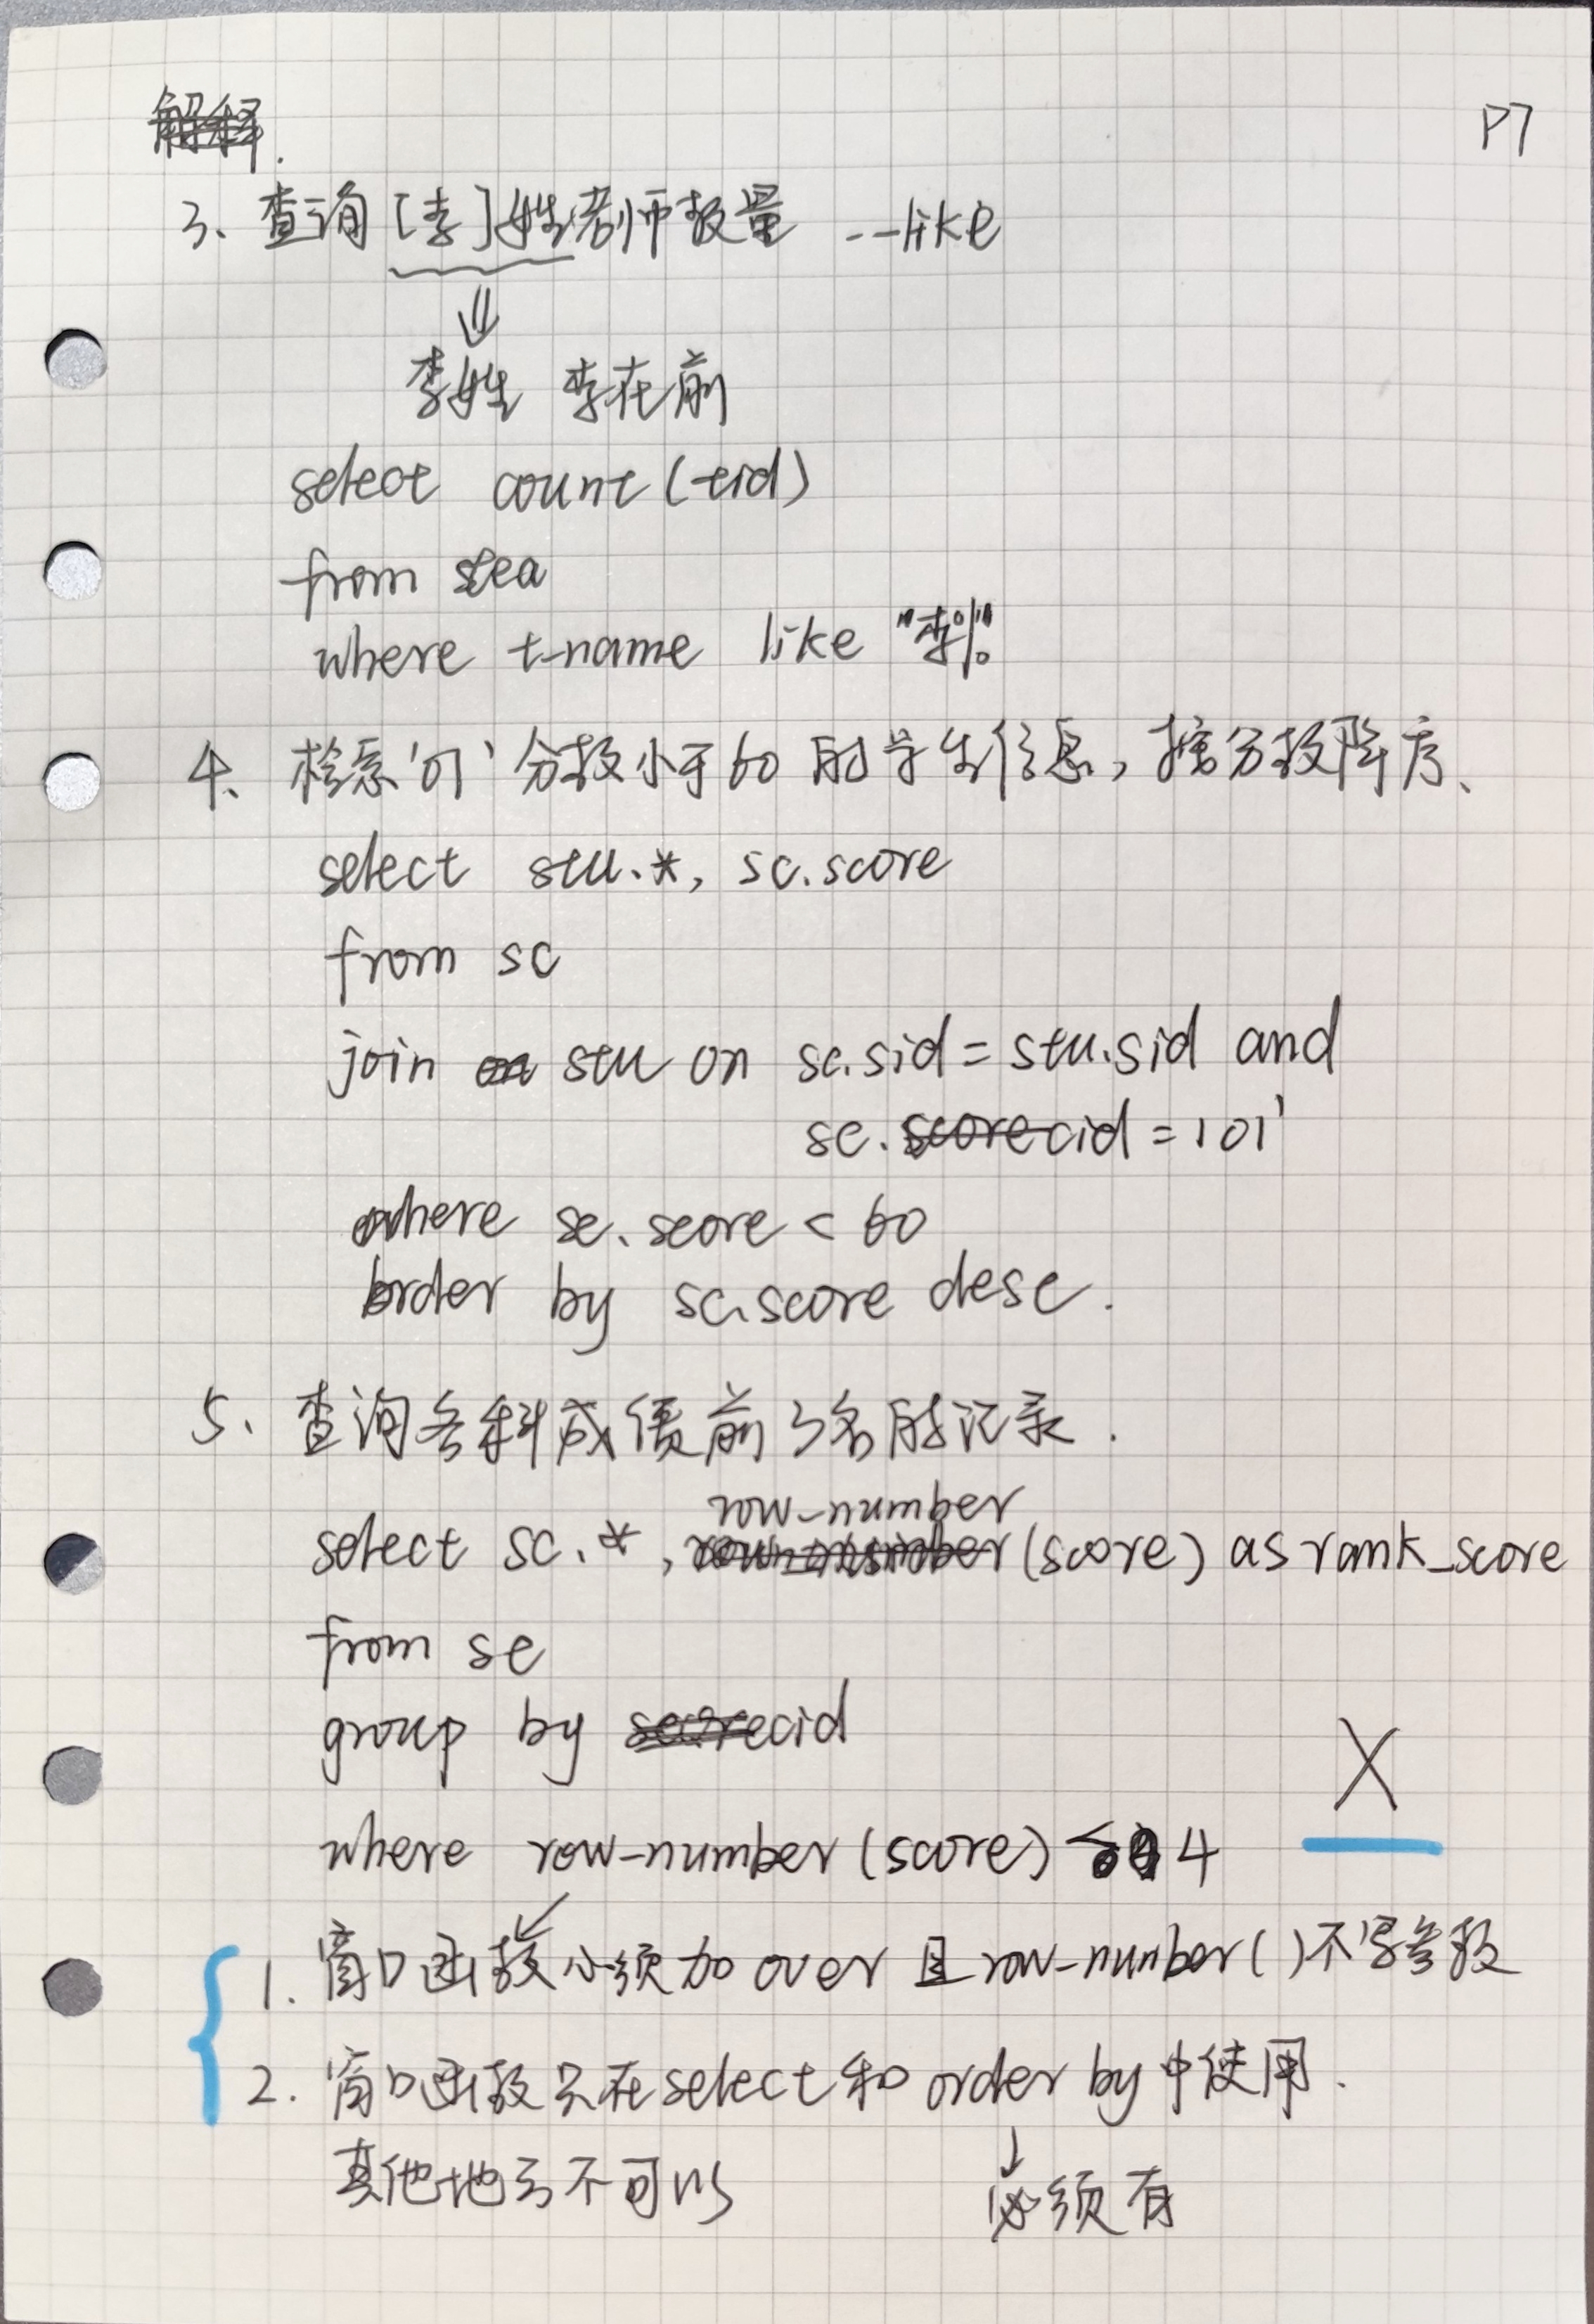 P7
解释.
3、查询[李]姓老师数量 --like
⇓
李姓 李在前
select count(tid)
from tea
where t-name like "李%"
4、检索'01'分数小于60的学生信息，按分数降序、
select stu.*, sc.score
from sc
join on stu on sc.sid = stu.sid and
sc.score cid = '01'
where sc.score < 60
order by sc.score desc.
5、查询各科成绩前3名的记录.
row-number
select sc.*, row-number(score) as rank_score
from sc
group by score cid
where row-number(score) < 4
X
1. 窗口函数必须加over 且row-number()不写参数
2. 窗口函数只在select和order by中使用.
↓
其他地方不可以 必须有